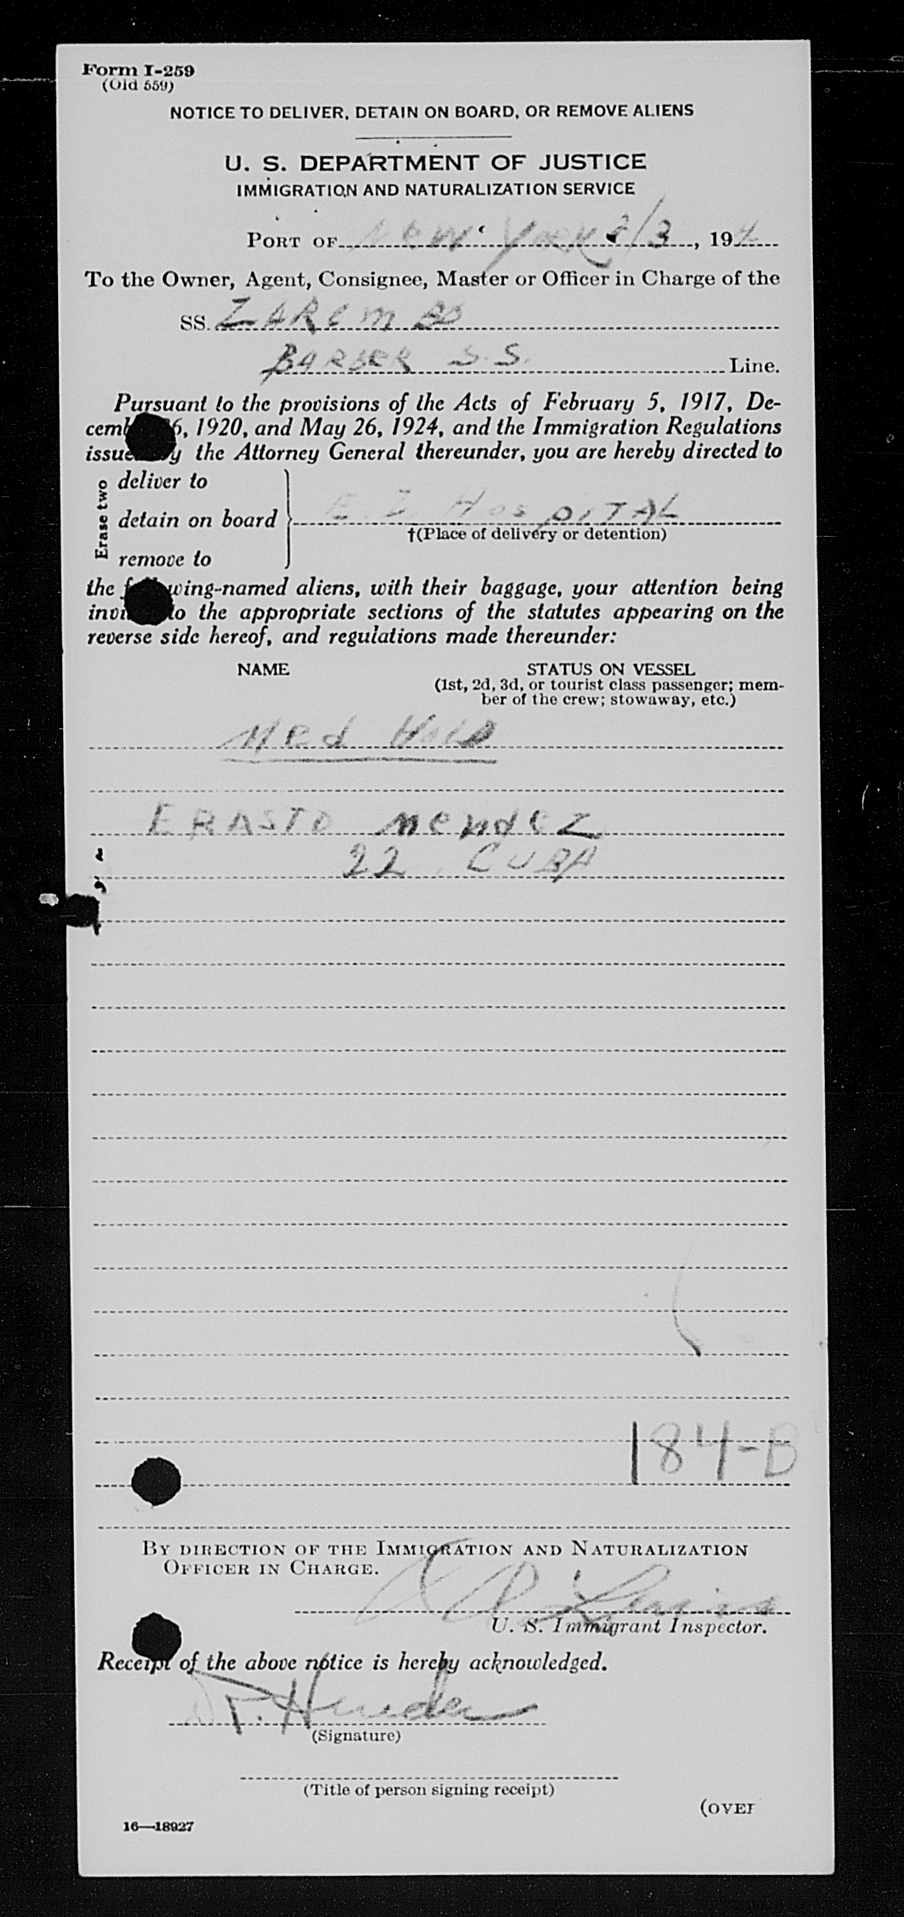 Form I-259
(Old 559)
NOTICE TO DELIVER, DETAIN ON BOARD, OR REMOVE ALIENS
U. S. DEPARTMENT OF JUSTICE
IMMIGRATION AND NATURALIZATION SERVICE
PORT OF New York 3/3, 194
To the Owner, Agent, Consignee, Master or Officer in Charge of the
SS. ZAREMBO
BARBER S.S. Line.
Pursuant to the provisions of the Acts of February 5, 1917, De-
cemb 6, 1920, and May 26, 1924, and the Immigration Regulations
issue y the Attorney General thereunder, you are hereby directed to
Erase two
deliver to
detain on board
remove to
E. I. HOSPITAL
†(Place of delivery or detention)
the f wing-named aliens, with their baggage, your attention being
invi to the appropriate sections of the statutes appearing on the
reverse side hereof, and regulations made thereunder:
NAME STATUS ON VESSEL
(1st, 2d, 3d, or tourist class passenger; mem-
ber of the crew; stowaway, etc.)
Med Hold
ERASTO MENDEZ
22 CUBA
184-B
BY DIRECTION OF THE IMMIGRATION AND NATURALIZATION
OFFICER IN CHARGE.
U. S. Immigrant Inspector.
Receipt of the above notice is hereby acknowledged.
(Signature)
(Title of person signing receipt)
(OVER
16—18927